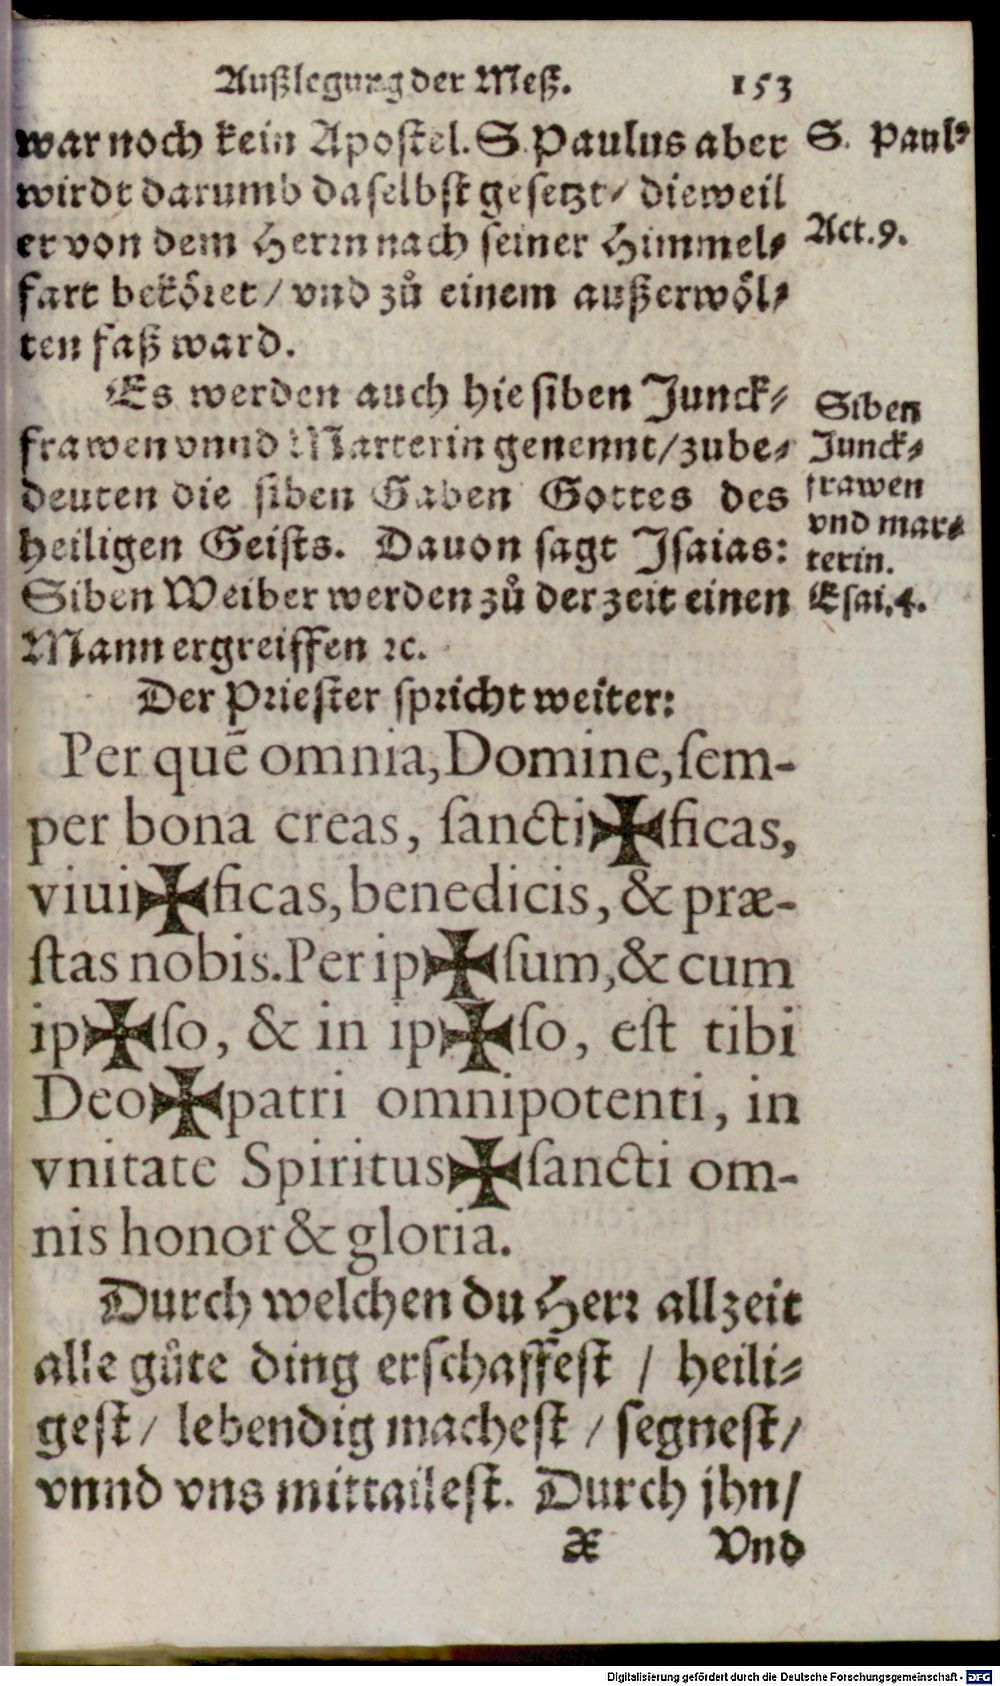 Außlegung der Meß. 153
war noch kein Apostel. S. Paulus aber
wirdt darumb daselbst gesetzt / dieweil
er von dem Herrn nach seiner Himmel-
fart beköret / vnd zů einem außerwöl-
ten faß ward.
S. Paul9
Act. 9.
Es werden auch hie siben Junck-
frawen vnnd Marterin genennt / zube-
deuten die siben Gaben Gottes des
heiligen Geists. Dauon sagt Isaias:
Siben Weiber werden zů der zeit einen
Mann ergreiffen ꝛc.
Siben
Junck-
frawen
vnd mar-
terin.
Esai. 4.
Der Priester spricht weiter:
Per quē omnia, Domine, ſem-
per bona creas, ſancti✠ficas,
viui✠ficas, benedicis, & præ-
ſtas nobis. Per ip✠ſum, & cum
ip✠ſo, & in ip✠ſo, eſt tibi
Deo✠patri omnipotenti, in
vnitate Spiritus✠ſancti om-
nis honor & gloria.
Durch welchen du Herr allzeit
alle gůte ding erschaffest / heili-
gest / lebendig machest / segnest /
vnnd vns mittailest. Durch jhn /
X Vnd
Digitalisierung gefördert durch die Deutsche Forschungsgemeinschaft - DFG